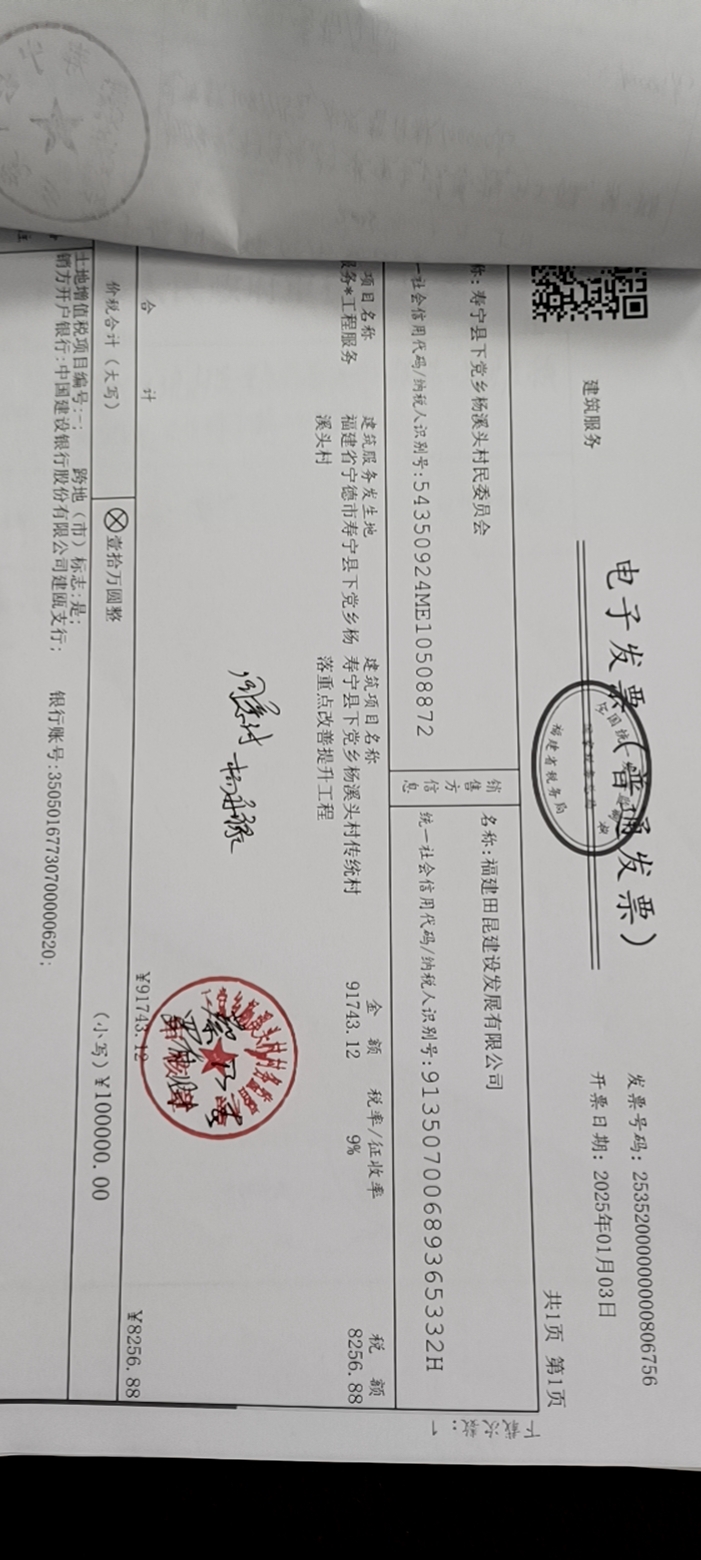 电子发票（普通发票）
建筑服务
发票号码：25352000000000806756
开票日期：2025年01月03日
共1页 第1页
福建省税务局
称：寿宁县下党乡杨溪头村民委员会
一社会信用代码/纳税人识别号：54350924ME10508872
销售方信息
名称：福建田昆建设发展有限公司
统一社会信用代码/纳税人识别号：91350700689365332H
下载次数：1
项目名称 建筑服务发生地 建筑项目名称 金额 税率/征收率 税额
服务*工程服务 福建省宁德市寿宁县下党乡杨 寿宁县下党乡杨溪头村传统村 91743.12 9% 8256.88
溪头村 落重点改善提升工程
合 计 ¥91743.12 ¥8256.88
价税合计（大写） ⊗壹拾万圆整 （小写）¥100000.00
土地增值税项目编号:-; 跨地（市）标志:是;
销方开户银行:中国建设银行股份有限公司建瓯支行; 银行账号:35050167730700000620;